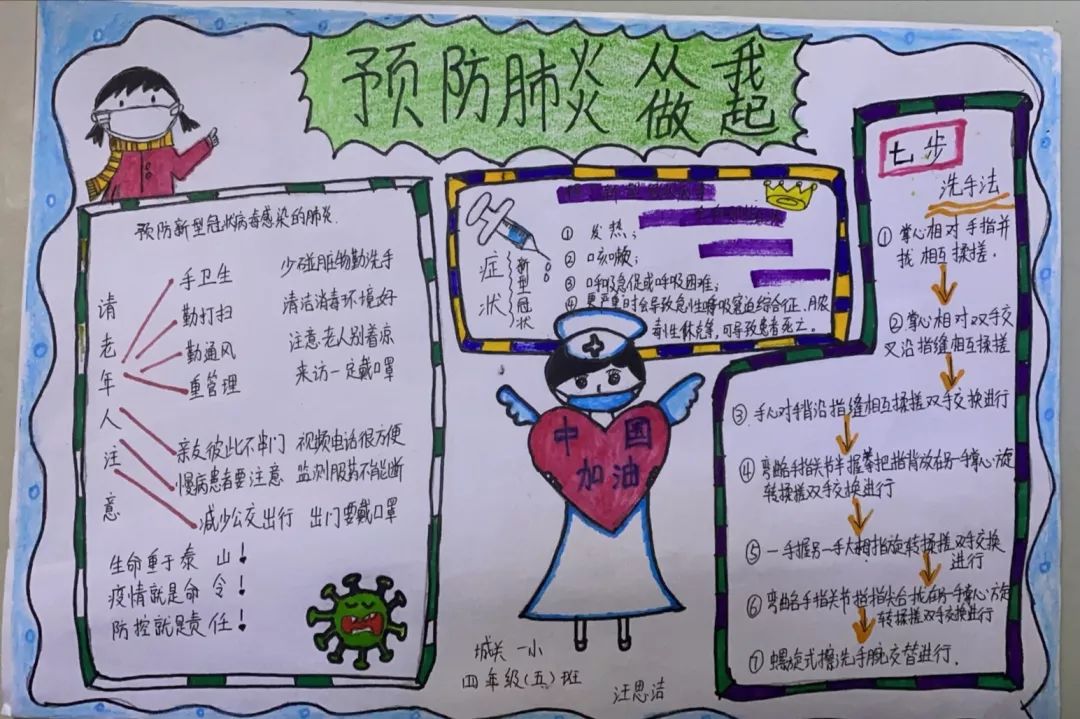 预防肺炎 从我做起
预防新型冠状病毒感染的肺炎
请老年人注意
手卫生 少碰脏物勤洗手
勤打扫 清洁消毒环境好
勤通风 注意老人别着凉
重管理 来访一定戴口罩
亲友彼此不串门 视频电话很方便
慢病患者要注意 监测服药不能断
减少公交出行 出门要戴口罩
生命重于泰山!
疫情就是命令!
防控就是责任!
症状
新型冠状
① 发热;
② 咳嗽;
③ 呼吸急促或呼吸困难;
④ 更严重时会导致急性呼吸窘迫综合征、脓
毒性休克等,可导致患者死亡。
中国
加油
城关一小
四年级(五)班
汪思洁
七步
洗手法
① 掌心相对手指并
拢相互揉搓.
② 掌心相对双手交
叉沿指缝相互揉搓
③ 手心对手背沿指缝相互揉搓双手交换进行
④ 弯曲手指关节半握拳把指背放在另一手掌心旋
转揉搓双手交换进行
⑤ 一手握另一手大拇指旋转揉搓双手交换
进行
⑥ 弯曲各手指关节指尖合拢在另一手掌心旋
转揉搓双手交换进行
⑦ 螺旋式擦洗手腕交替进行.